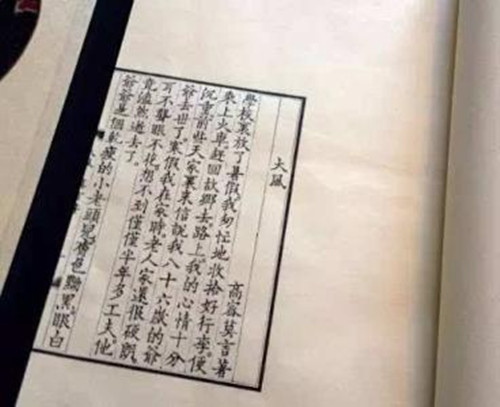 大風
高密莫言著
學校裏放了暑假我匆忙地收拾好行李，便
乘上火車趕回故鄉去路上我的心情十分
沉重前些天家裏來信說我八十六歲的爺
爺去世了。寒假我在家時老人家還很硬朗
耳不聾眼不花，想不到僅僅半年多工夫，他
竟溘然逝去了。
爺爺是個乾瘦的小老頭兒膚色黝黑，眼白